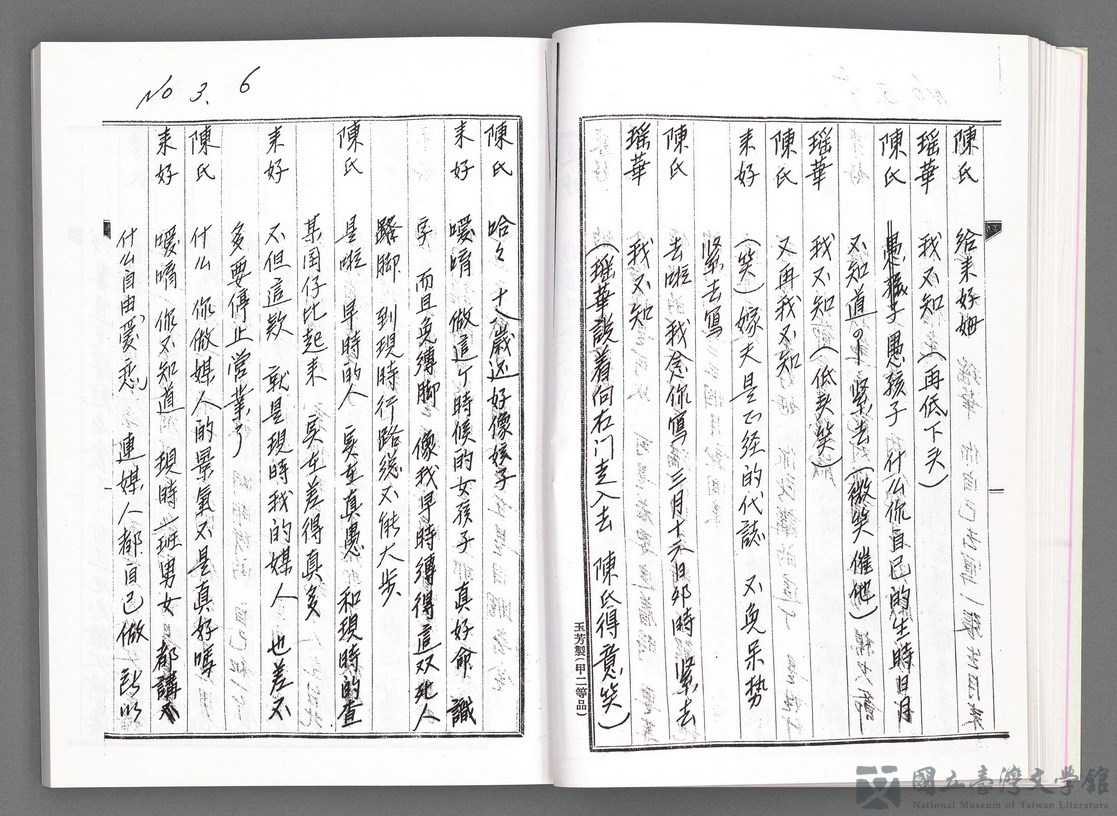 陳氏 給来好姆 瑶華 你自己去寫一張生月来
瑶華 我不知(再低下头)
陳氏 愚孩子 什么你自己的生時日月
不知道 紧去(微笑催他)
瑶華 我不知(低头笑)
陳氏 又再我不知
来好 (笑)嫁夫是正经的代誌 不免呆势
紧去寫
陳氏 去啦 我念你寫 三月十六日卯時 紧去
瑶華 我不知
(瑶華説着向右门走入去 陳氏得意笑)
玉芳製(甲二等品)
No 3. 6
陳氏 哈々 十八歳还好像孩子
来好 嗳唷 做這个時候的女孩子 真好命 識
字 而且免縛脚 像我早時縛得這双死人
骹脚 到現時行路総不能大步
陳氏 是啦 早時的人 実在真愚 和現時的查
某囝仔比起来 実在差得真多
来好 不但這款 就是現時我的媒人 也差不
多要停止営業了
陳氏 什么 你做媒人的景氣不是真好嗎
来好 嗳唷 你不知道 現時一班男女 都講
什么自由愛恋 連媒人都自己做 所以
國立臺灣文學館
National Museum of Taiwan Literature